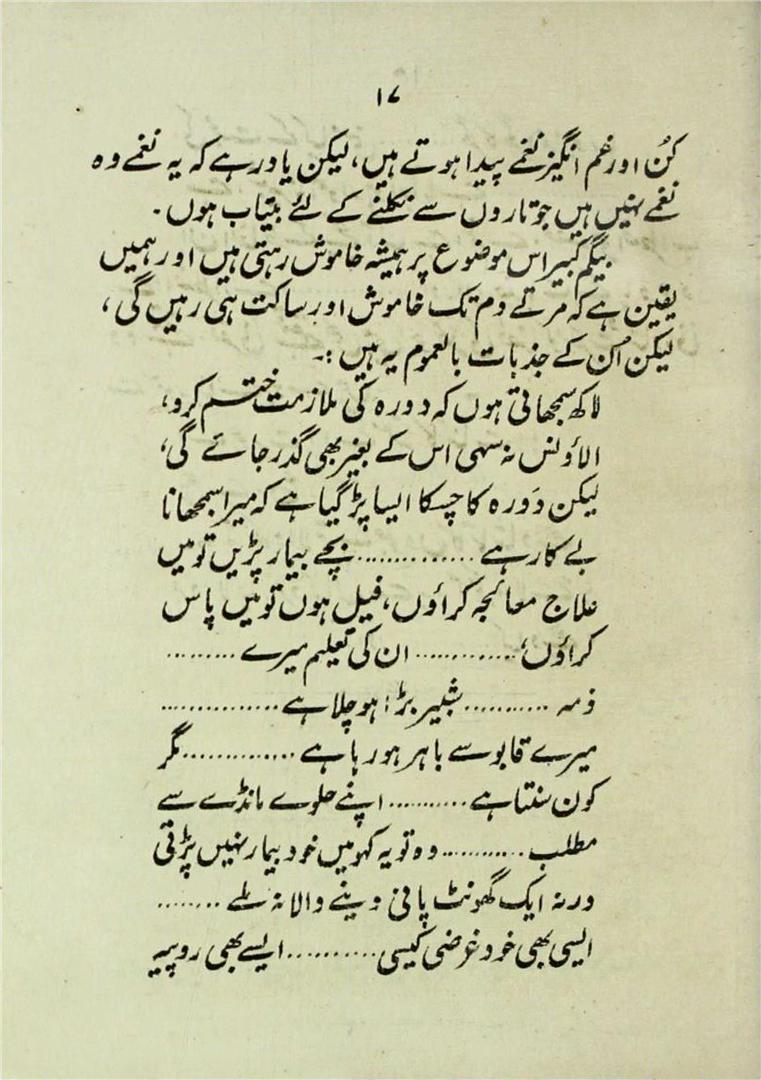 ۱۷
کُن اور غم انگیز نغمے پیدا ہوتے ہیں، لیکن یاد رہے کہ یہ نغمے وہ
نغمے نہیں ہیں جو تاروں سے نکلنے کے لئے بیتاب ہوں۔
بیگم کبیر اس موضوع پر ہمیشہ خاموش رہتی ہیں اور ہمیں
یقین ہے کہ مرتے دم تک خاموش اور ساکت ہی رہیں گی،
لیکن اُن کے جذبات بالعموم یہ ہیں :۔
لاکھ سمجھاتی ہوں کہ دورہ کی ملازمت ختم کرو،
الاؤنس نہ سہی اس کے بغیر بھی گذر جائے گی،
لیکن دَورہ کا چسکا ایسا پڑ گیا ہے کہ میرا سمجھانا
بے کار ہے ............. بچے بیمار پڑیں تو میں
علاج معالجہ کراؤں، فیل ہوں تو میں پاس
کراؤں، ............ ان کی تعلیم میرے .........
ذمہ .......... بشیر بڑا ہو چلا ہے ...............
میرے قابو سے باہر ہو رہا ہے ............. مگر
کون سنتا ہے .......... اپنے حلوے مانڈے سے
مطلب .......... وہ تو یہ کہو میں خود بیمار نہیں پڑتی
ورنہ ایک گھونٹ پانی دینے والا نہ ملے ........
ایسی بھی خود غرضی کیسی .......... ایسے بھی روپیہ